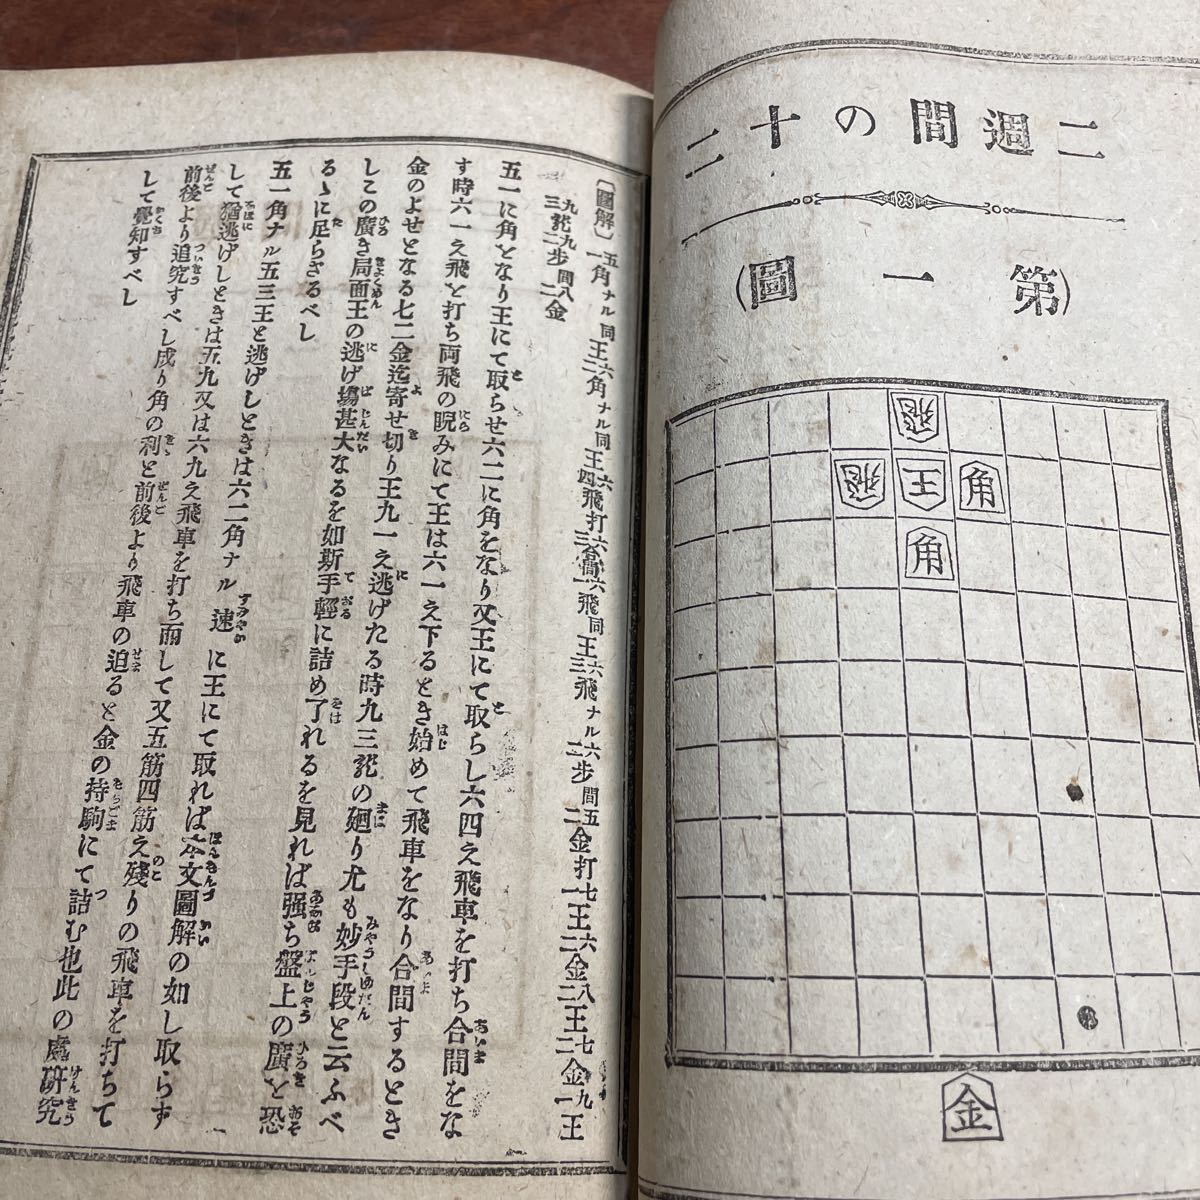 二週間の十二
(第一圖)
飛
飛王角
角
金
〔圖解〕五一角ナル同王六二角ナル同王六四飛打六三合間六一飛同王六三飛ナル六二步間五二金打七一王六二金八二王七二金九一王
九三龍九二步同八二金
五一に角となり王にて取らせ六二に角をなり又王にて取らし六四え飛車を打ち合間をな
す時六一え飛を打ち両飛の睨みにて王は六一え下るとき始めて飛車をなり合間するとき
金のよせとなる七二金迄寄せ切り王九一え逃げたる時九三龍の廻り尤も妙手段と云ふべ
しこの廣き局面王の逃げ場甚大なるを如斯手輕に詰め了れるを見れば强ち盤上の廣を恐
るゝに足らざるべし
五一角ナル五三王と逃げしときは六二角ナル速に王にて取れば本文圖解の如し取らず
して猶逃げしときは五九又は六九え飛車を打ち而して又五筋四筋え殘りの飛車を打ちて
前後より追究すべし成り角の利と前後より飛車の迫ると金の持駒にて詰む也此の處硏究
して覺知すべし